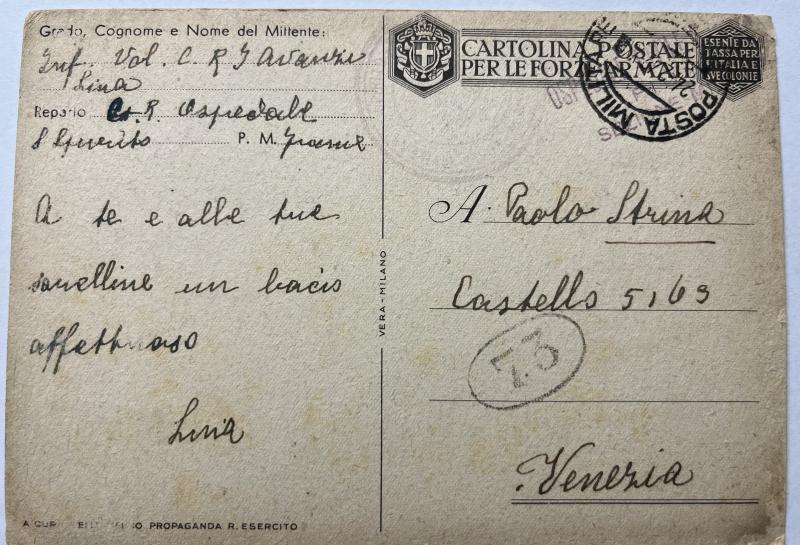 Grado, Cognome e Nome del Mittente:
Inf. Vol. C. R. I Avanzi
Lina
Reparto R. Ospedale
S Spirito P. M.
A te e alle tue
sorelline un bacio
affettuoso
Lina
A CUR PROPAGANDA R. ESERCITO
VERA - MILANO
CARTOLINA POSTALE
PER LE FORZE ARMATE
ESENTE DA
TASSA PER
L'ITALIA E
SUE COLONIE
POSTA MILITARE
A. Paolo Strina
Castello 5169
73
Venezia